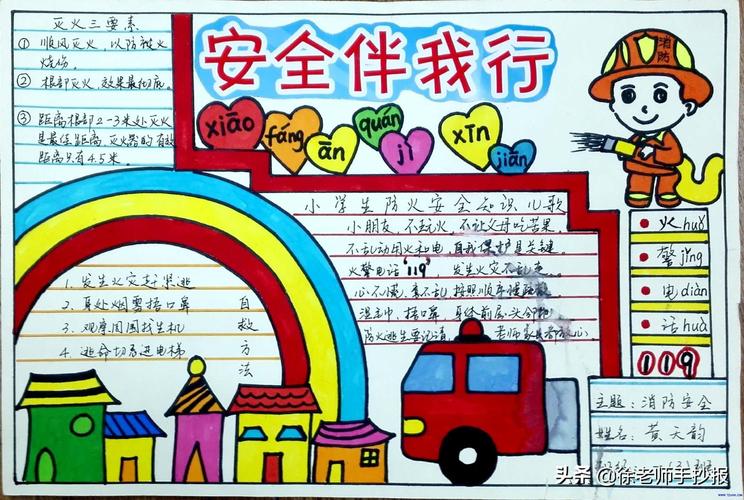 灭火三要素
① 顺风灭火，以防被火
烧伤。
② 根部灭火，效果最彻底。
③ 距离根部2-3米处灭火
是最佳距离，灭火器的有效
距离只有4.5米。
安全伴我行
xiāo fáng ān quán jì xīn jiān
消防
小学生防火安全知识儿歌
小朋友，不玩火，不让父母吃苦果。
不乱动用火和电，自我保护是关键。
火警电话"119"，发生火灾不乱走。
心不慌，意不乱，按照顺序
湿毛巾，捂口鼻，身体前屈头
防火逃生要记清，老师家长
火huǒ
警jǐng
电diàn
话huà
119
1. 发生火灾赶紧逃
2. 身处烟雾捂口鼻
3. 观摩周围找生机
4. 逃命切忌进电梯
自救方法
主题：消防安全
姓名：黄天韵
头条@徐老师手抄报